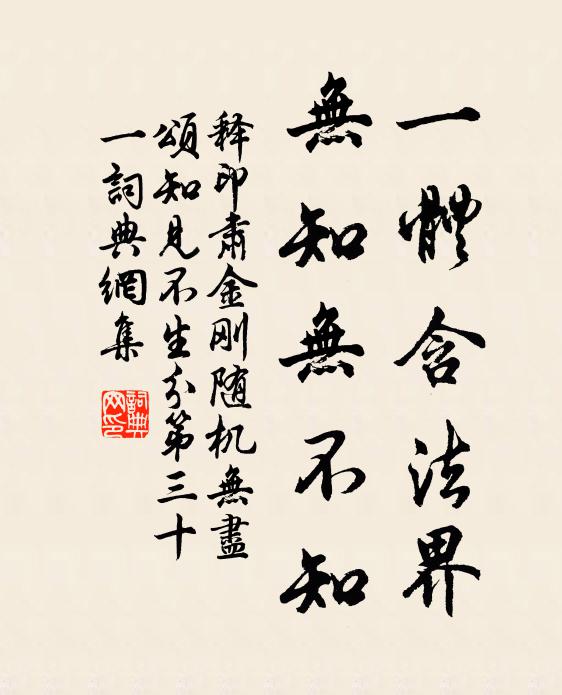 一體含法界
無知無不知
释印肅金刚随机無盡
頌知見不生分第三十
一詞典網集
詞典
网印